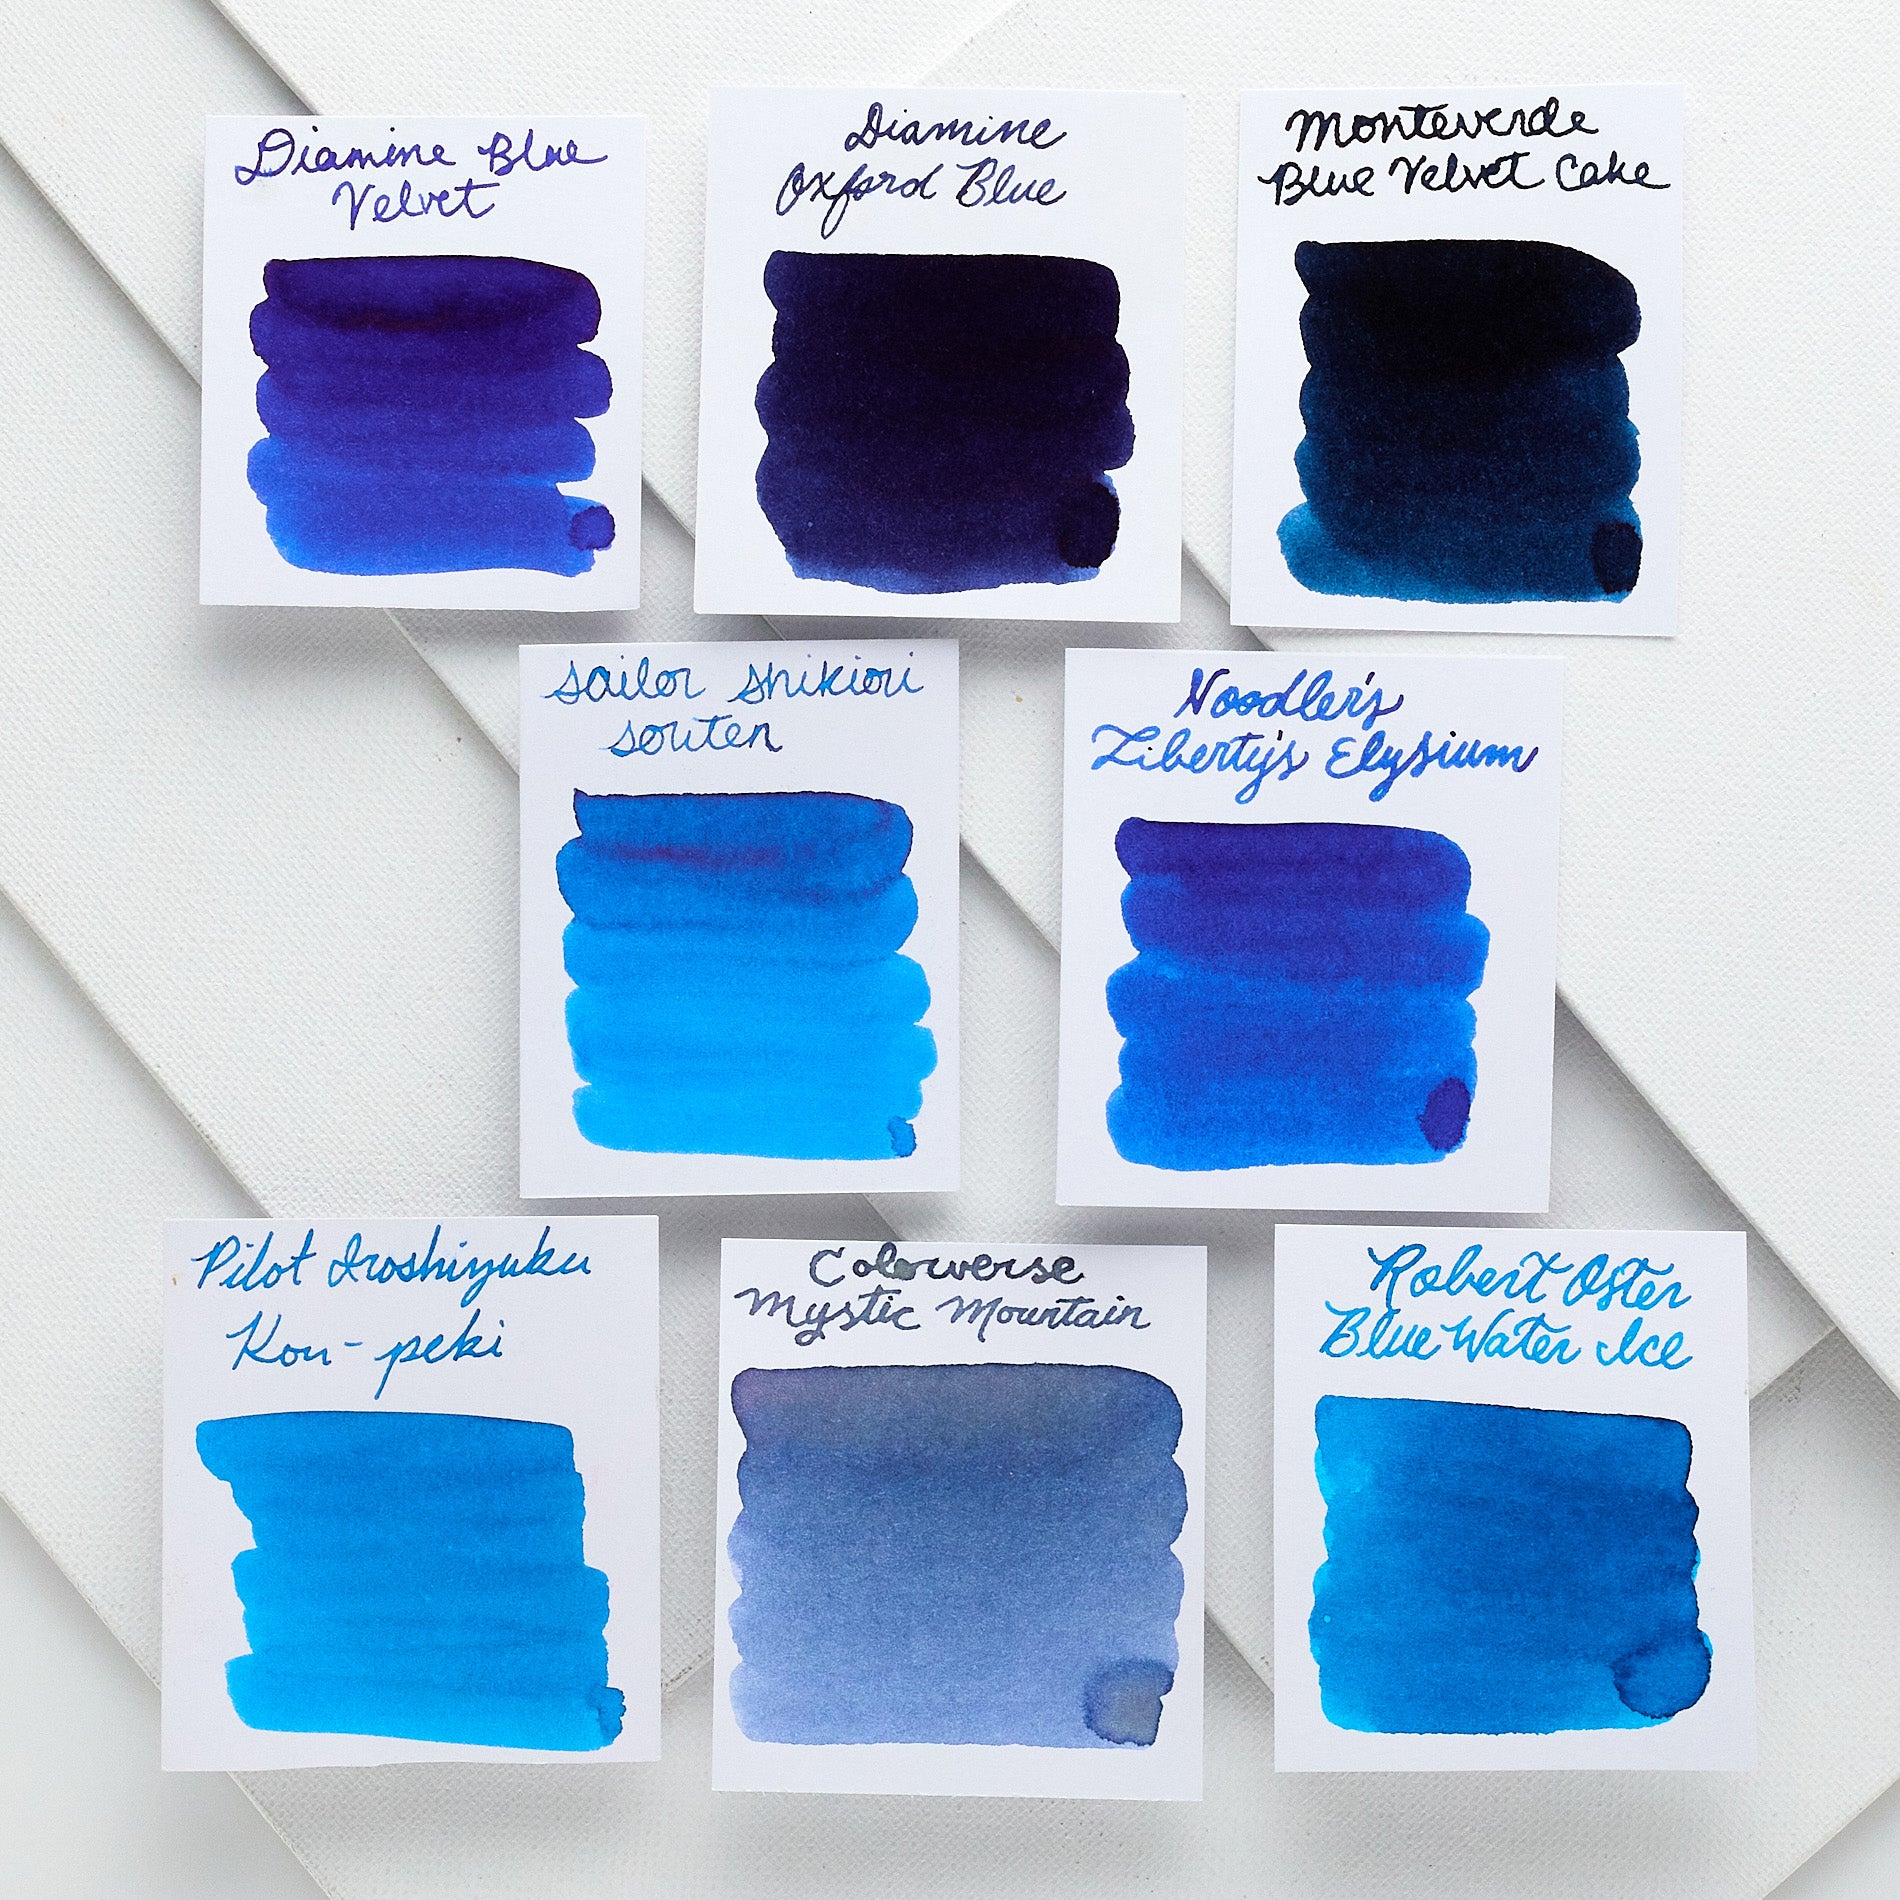 Diamine Blue
Velvet
Diamine
Oxford Blue
Monteverde
Blue Velvet Cake
Sailor Shikiori
Souten
Noodler's
Liberty's Elysium
Pilot Iroshizuku
Kon-peki
Colorverse
Mystic Mountain
Robert Oster
Blue Water Ice